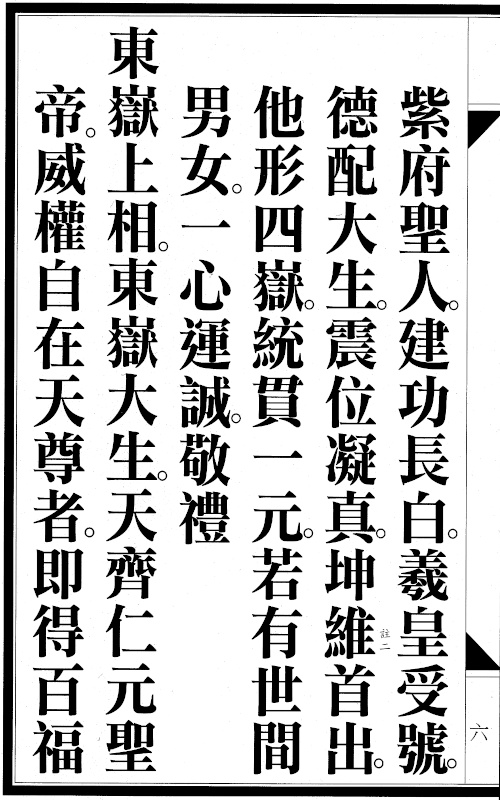 紫府聖人。建功長白。羲皇受號。
德配大生。震位凝真。坤維註二首出。
他形四嶽。統貫一元。若有世間
男女。一心運誠。敬禮
東嶽上相。東嶽大生。天齊仁元聖
帝。威權自在天尊者。即得百福
六